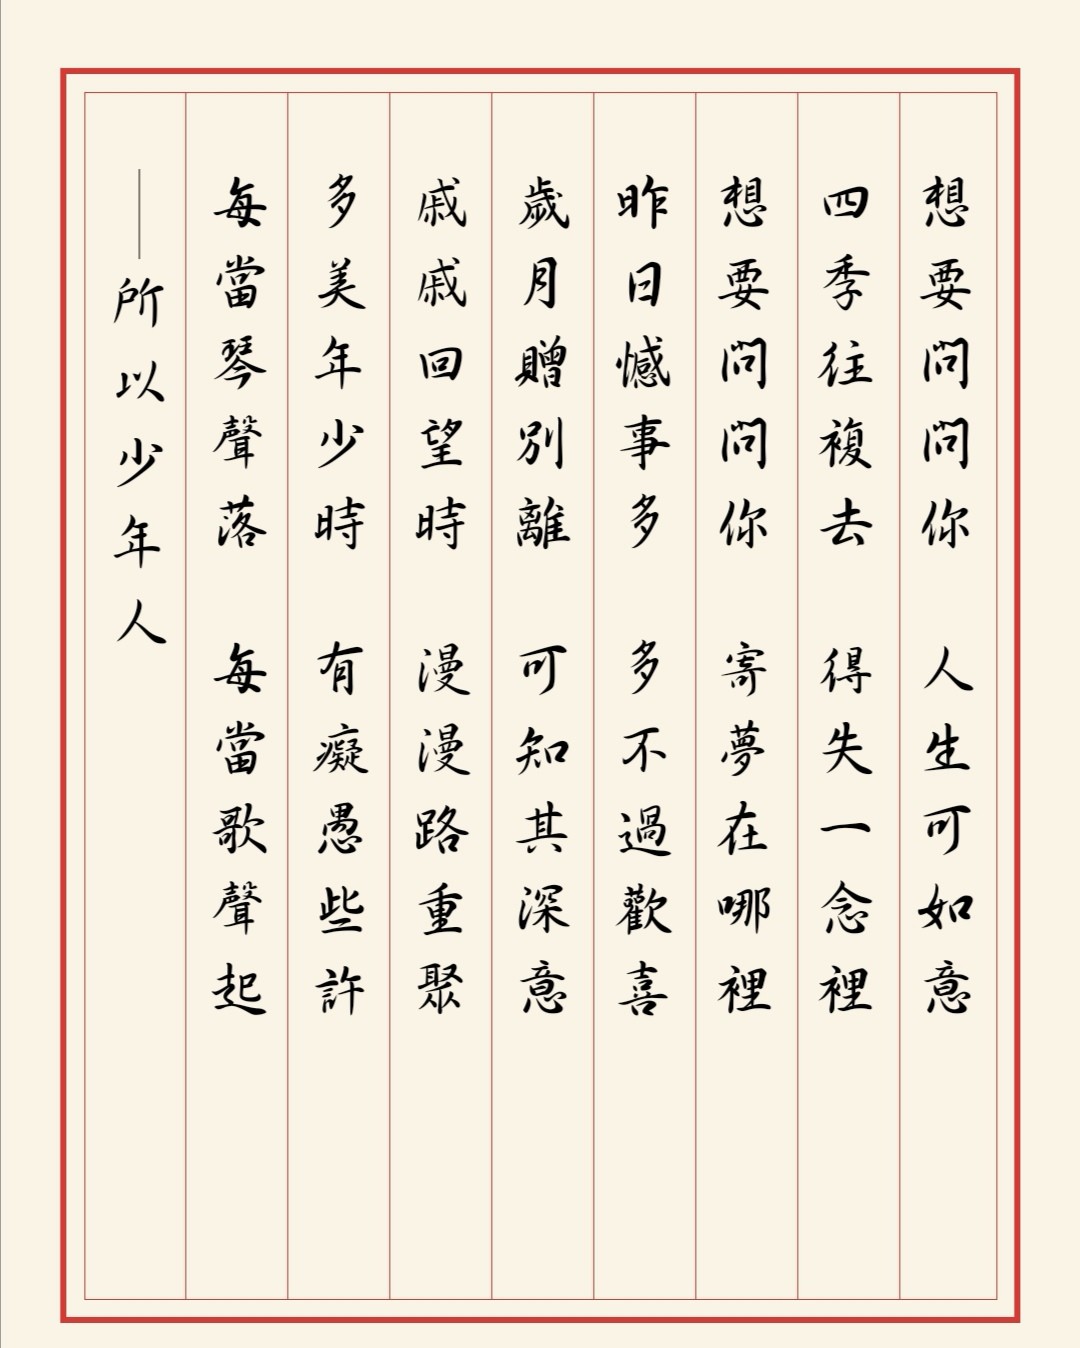 想要問問你 人生可如意
四季往複去 得失一念裡
想要問問你 寄夢在哪裡
昨日憾事多 多不過歡喜
歲月贈別離 可知其深意
戚戚回望時 漫漫路重聚
多美年少時 有癡愚些許
每當琴聲落 每當歌聲起
——所以少年人